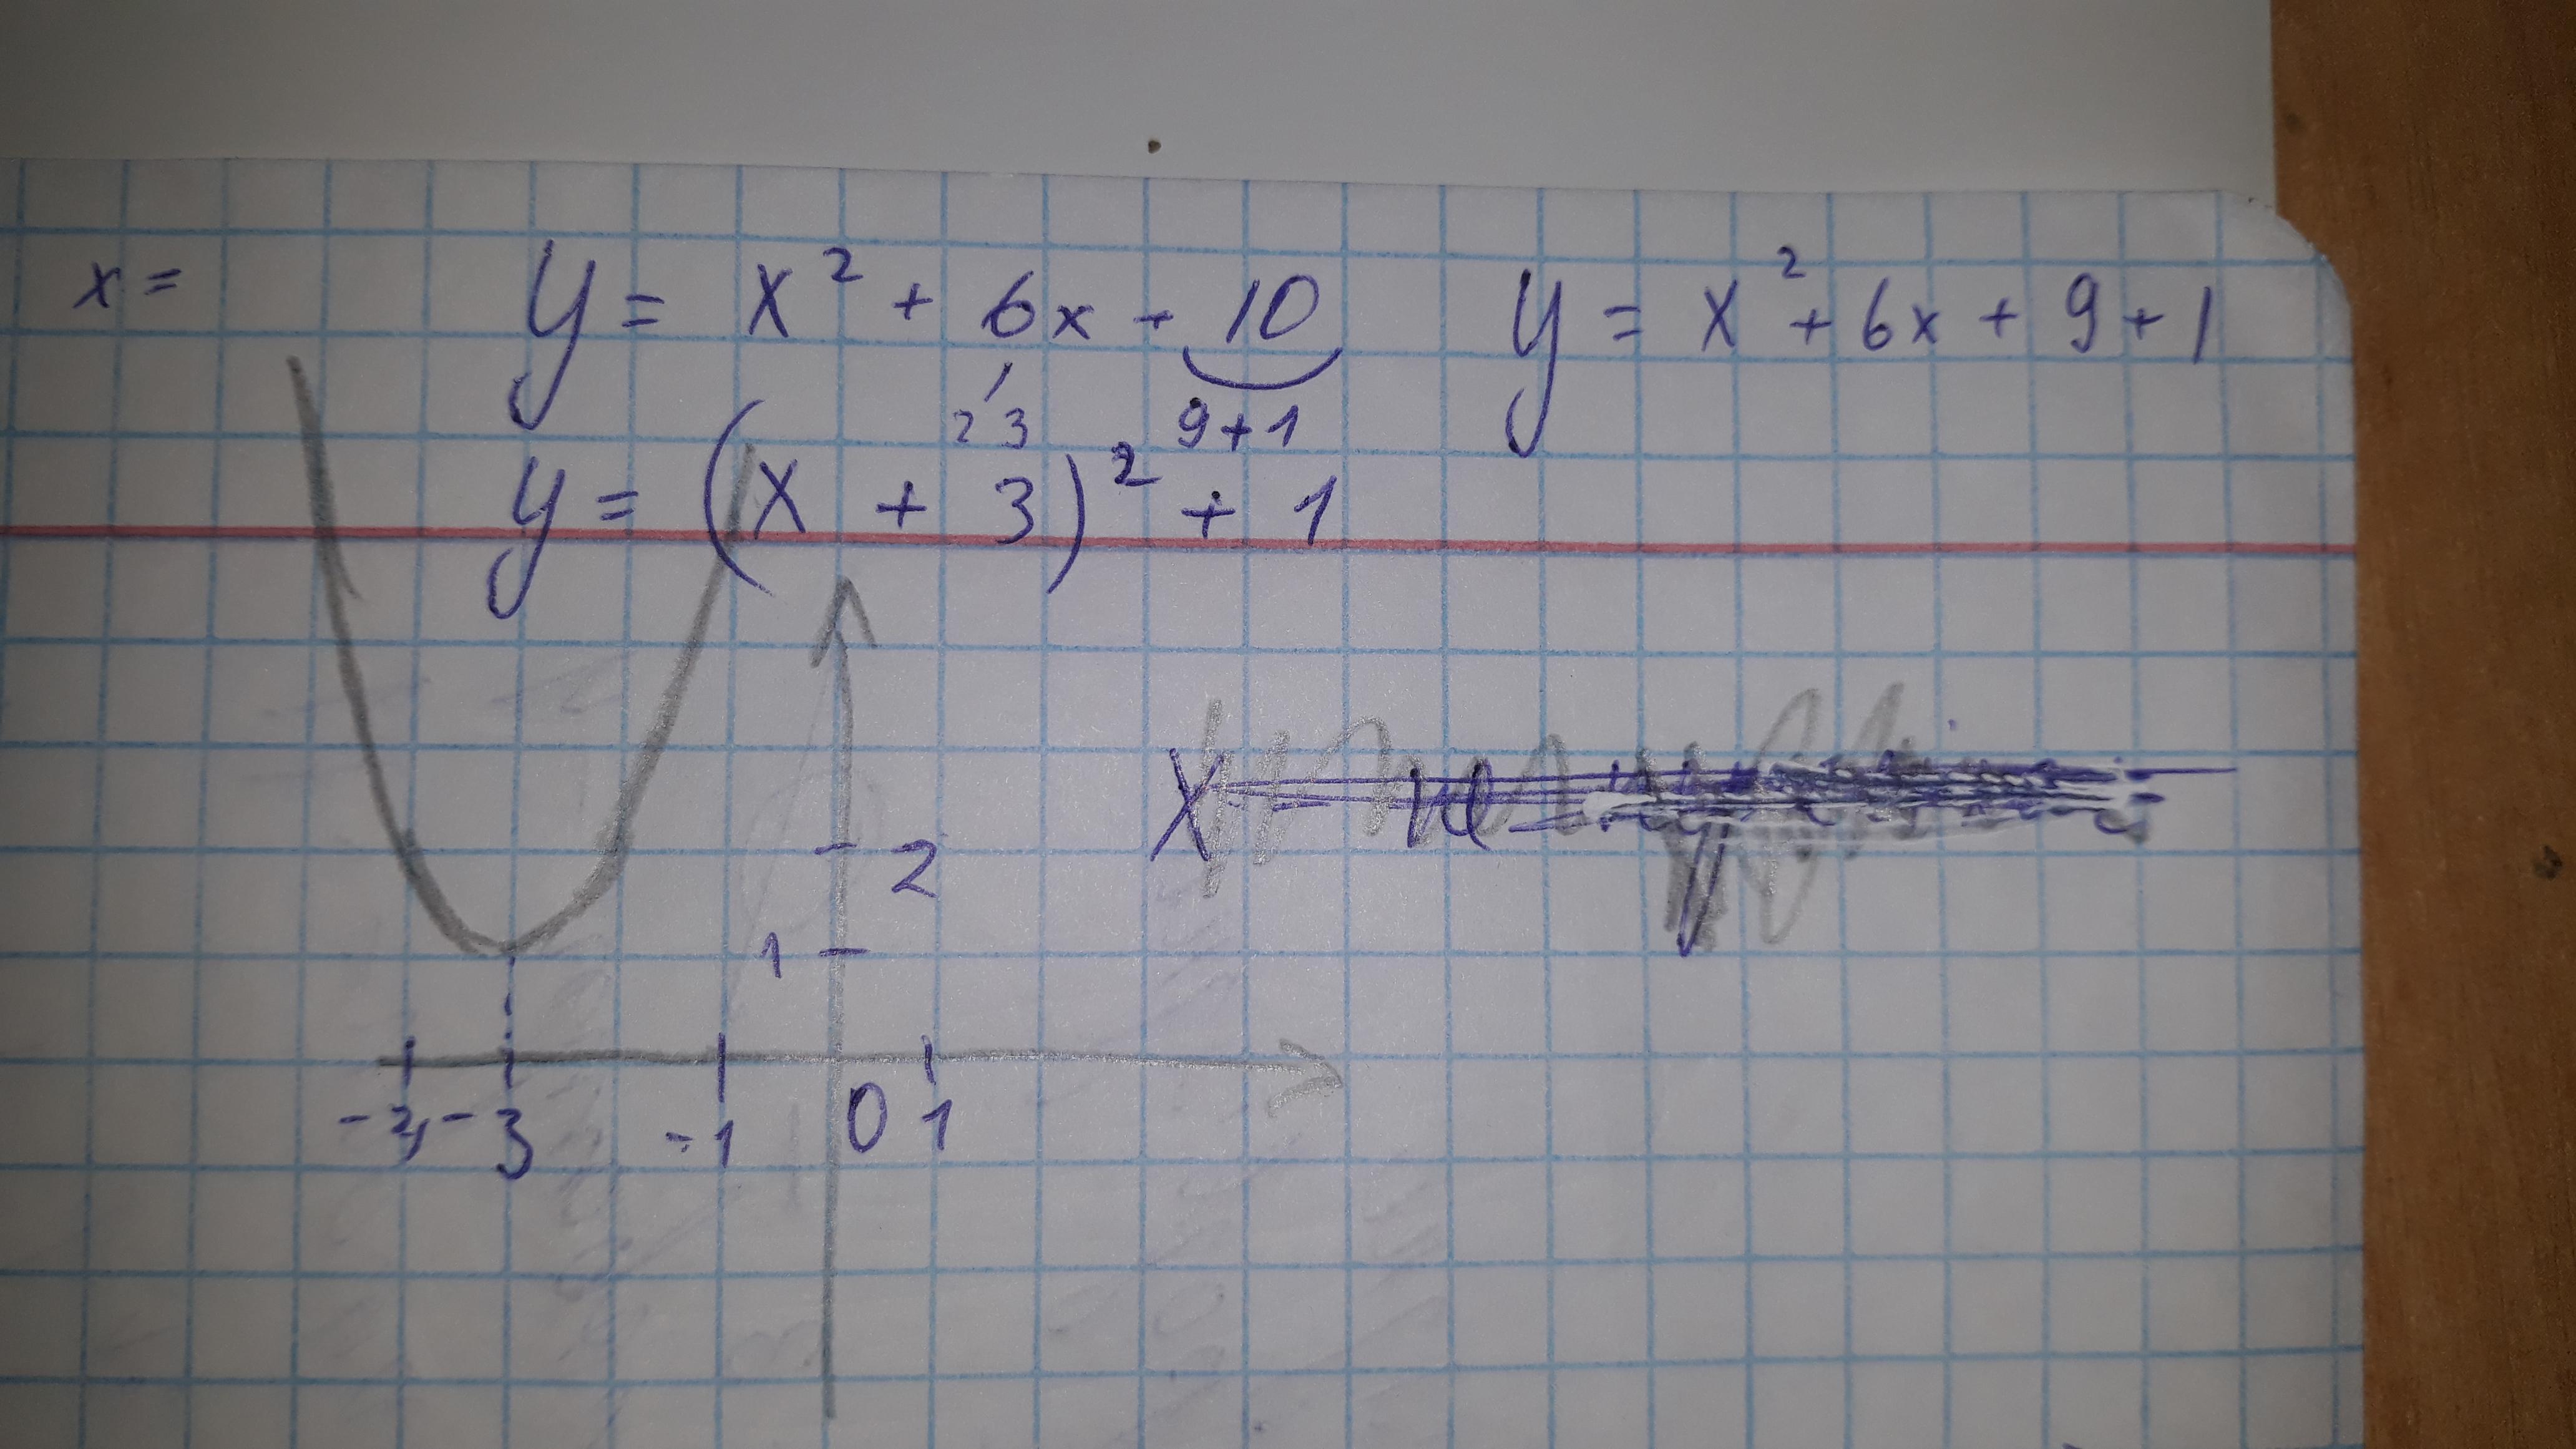 x =
y = x² + 6x + 10
y = x² + 6x + 9 + 1
2 3
9+1
y = (x + 3)² + 1
2
1
-2, -3 -1 0 1